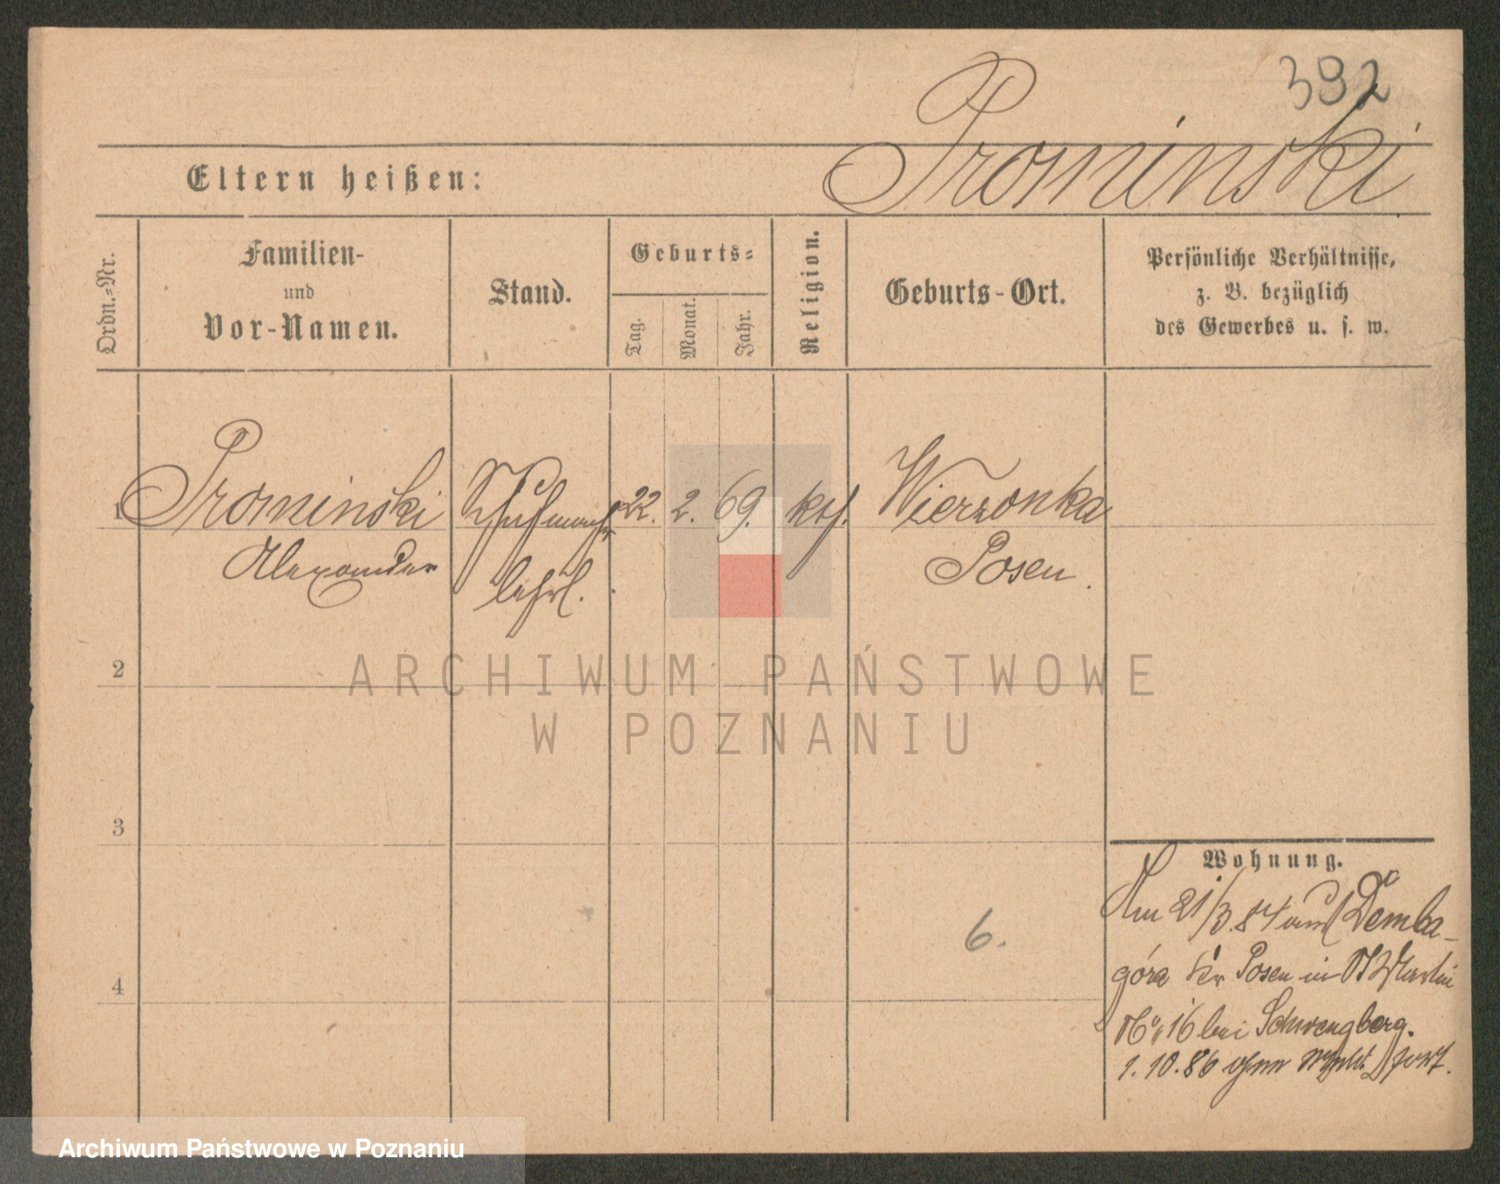 392
Prominski
Eltern heißen:
Ordn.-Nr.
Familien-
und
Vor-Namen.
Stand.
Geburts-
Tag.
Monat.
Jahr.
Religion.
Geburts-Ort.
Persönliche Verhältnisse,
z. B. bezüglich
des Gewerbes u. s. w.
1 Prominski Schuhmach 22. 2. 69. kth. Wierzonka
Alexander lehrl. Posen.
2
ARCHIWUM PAŃSTWOWE
W POZNANIU
3
Wohnung.
Am 21/3 84 aus Demba-
6.
góra Kr Posen in St Martin
4
No 16 bei Schwengberg.
1.10.86 ohne fort.
Archiwum Państwowe w Poznaniu